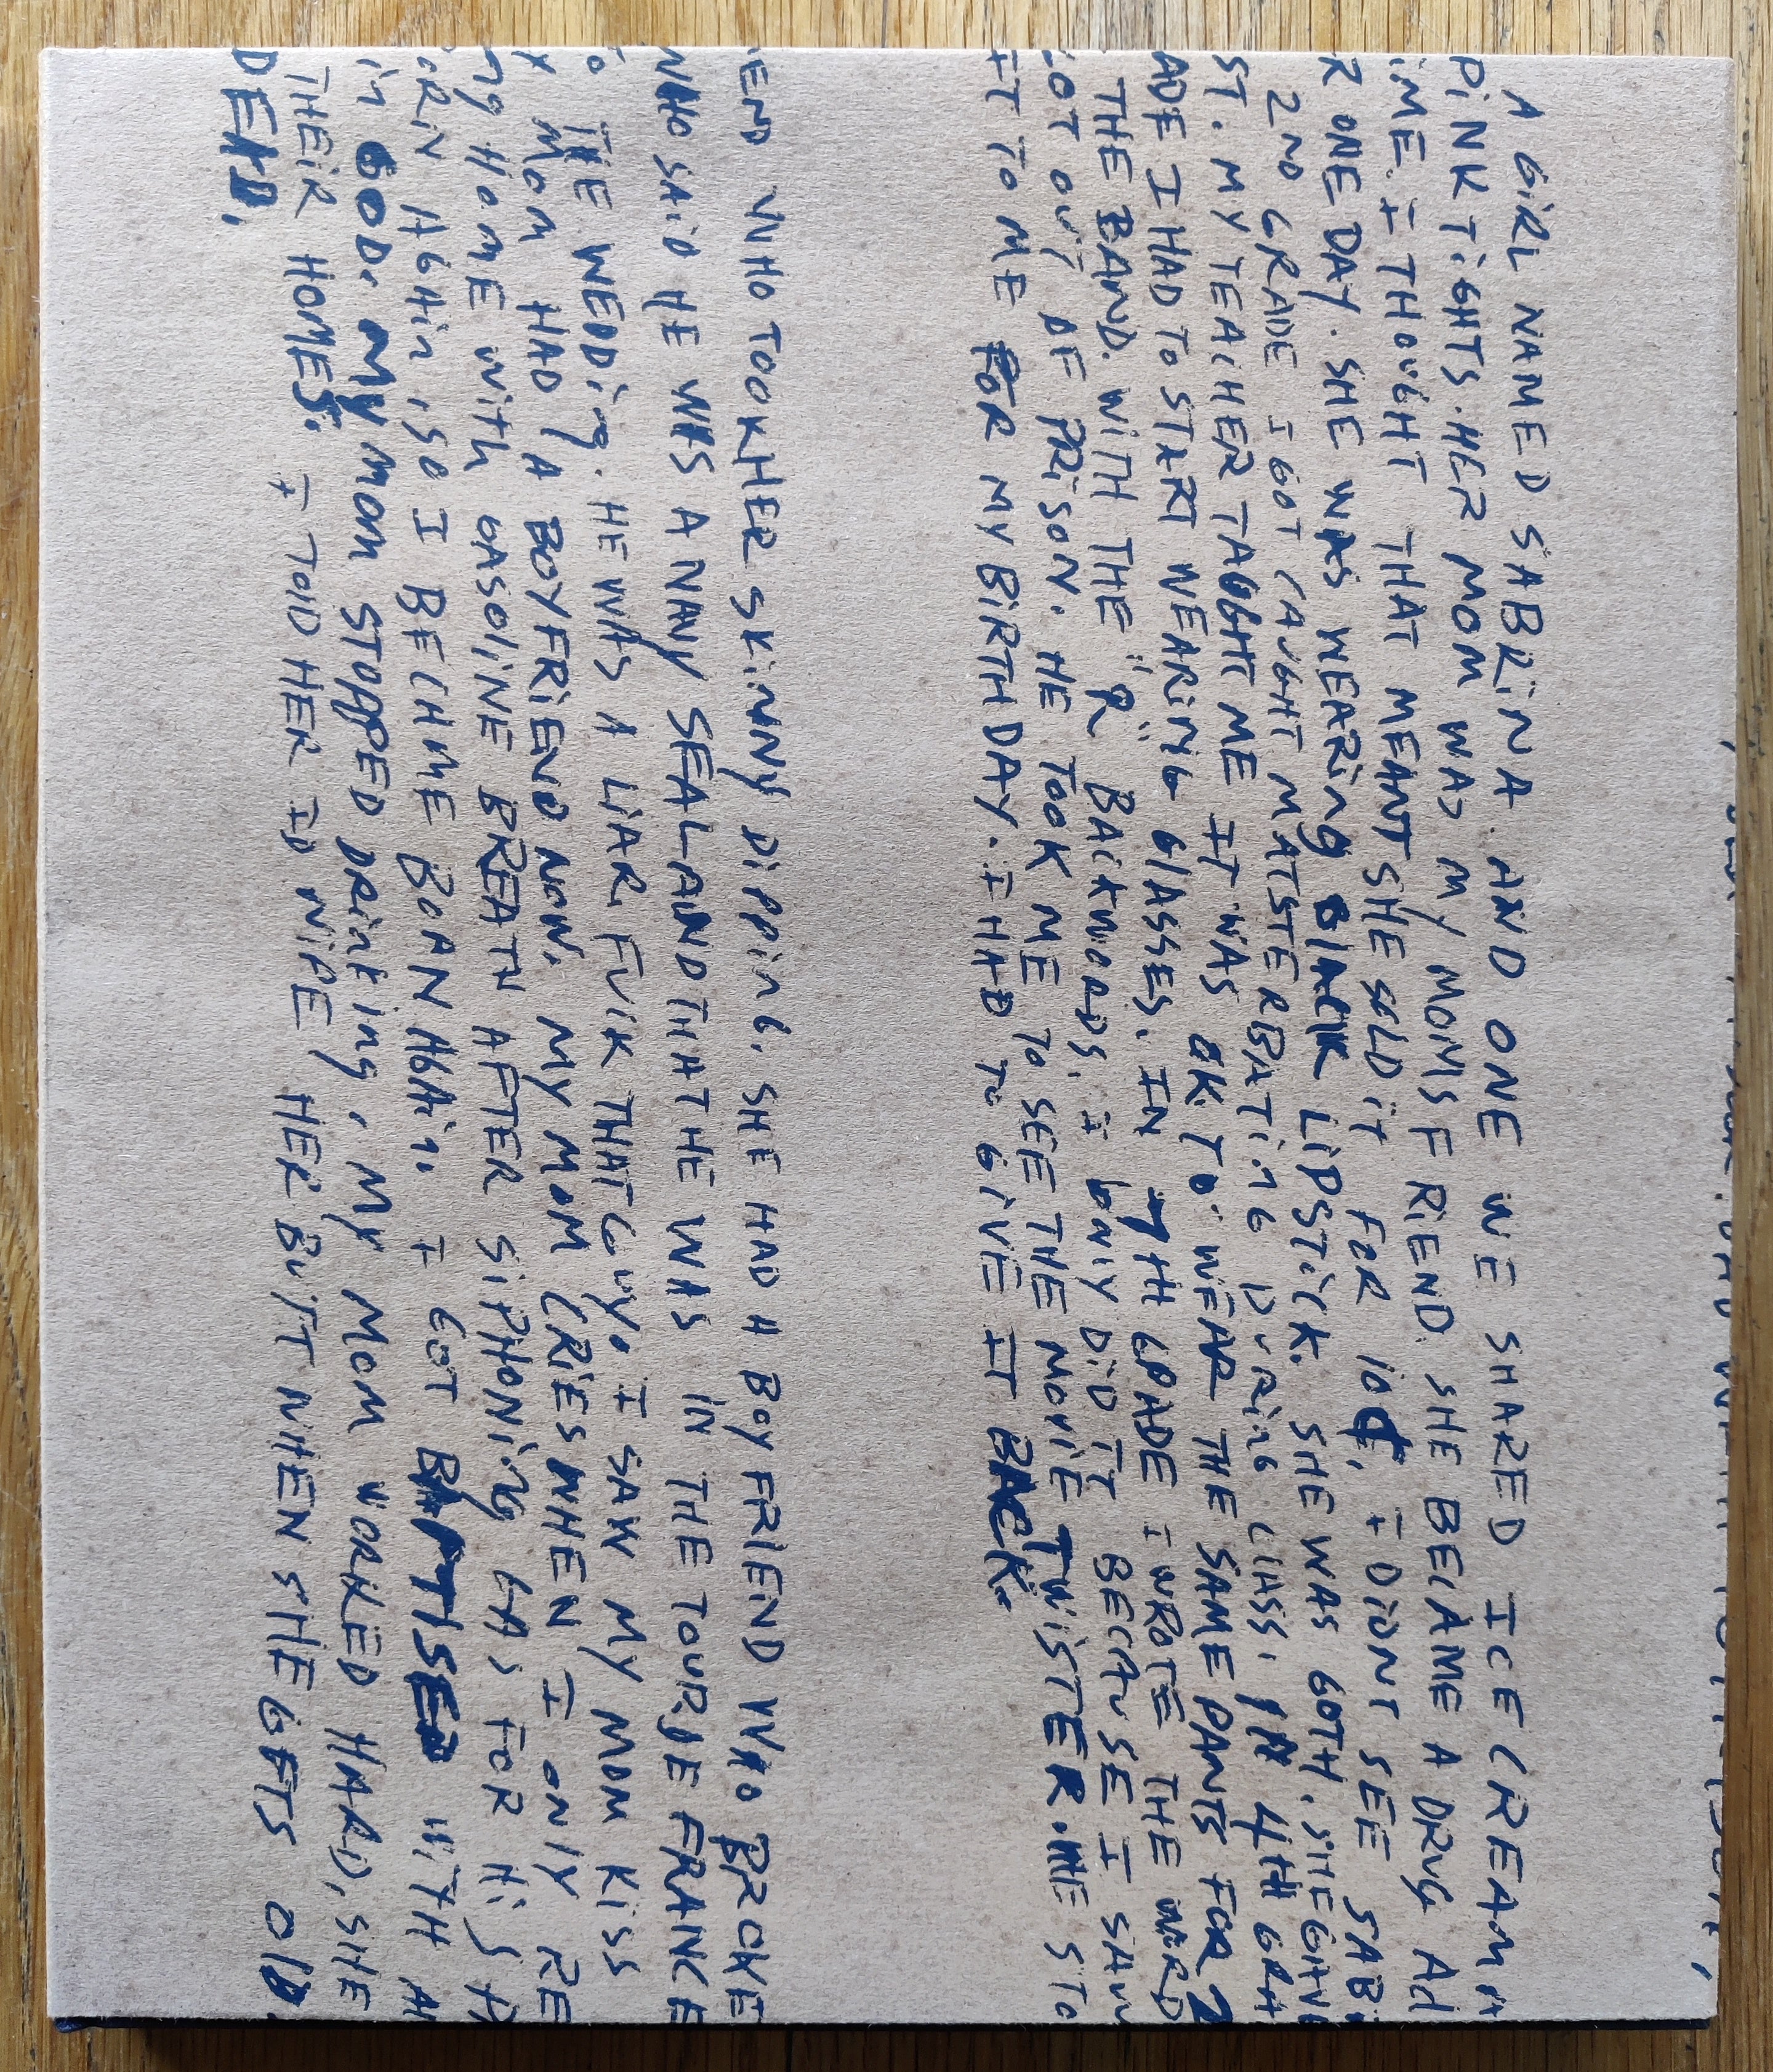 A GIRL NAMED SABRINA. AND ONE WE SHARED ICE CREAM
PINK TIGHTS. HER MOM WAS MY MOMS FRIEND. SHE BECAME A DRUG Ad
IME. I THOUGHT THAT MEANT SHE SOLD IT FOR 10¢. I DIDNT SEE SAB
R ONE DAY. SHE WAS WEARING BLACK LIPSTICK. SHE WAS GOTH. SHE GAVE
2ND GRADE I GOT CAUGHT MATSTERBATING DURING CLASS. IN 4TH GRA
ST. MY TEACHER TAUGHT ME IT WAS OK TO WEAR THE SAME PANTS FOR 2
ADE I HAD TO START WEARING GLASSES. IN 7TH GRADE I WROTE THE WORD
THE BAND. WITH THE "R" BACKWORDS. I ONLY DID IT BECAUSE I SAW
OT OUT OF PRISON. HE TOOK ME TO SEE THE MOVIE TWISTER. HE STO
IT TO ME FOR MY BIRTHDAY. I HAD TO GIVE IT BACK.
END WHO TOOK HER SKINNY DIPPING. SHE HAD A BOYFRIEND WHO BROKE
WHO SAID HE WAS A NAVY SEAL AND THAT HE WAS IN THE TOUR DE FRANCE
TO THE WEDDING. HE WAS A LIAR. FUCK THAT GUY. I SAW MY MOM KISS
Y MOM HAD A BOYFRIEND NOW. MY MOM CRIES WHEN I ONLY RE
ING HOME WITH GASOLINE BREATH AFTER SIPHONING GAS FOR HIS
ORIN AGAIN, SO I BECAME BOAN AGAIN. I GOT BAPTISED WITH
IN GOD. MY MOM STOPPED DRINKING, MY MOM WORKED HARD, SHE
THEIR HOMES. I TOLD HER ID WIPE HER BUTT WHEN SHE GETS OLD.
DEAD.